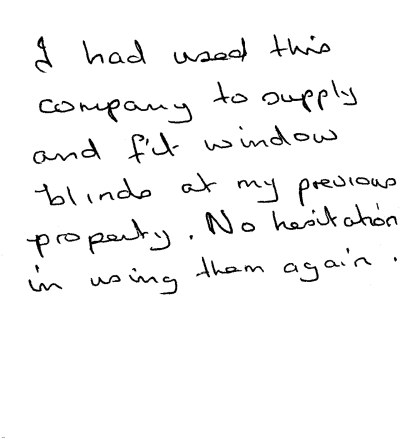 I had used this
company to supply
and fit window
blinds at my previous
property. No hesitation
in using them again.